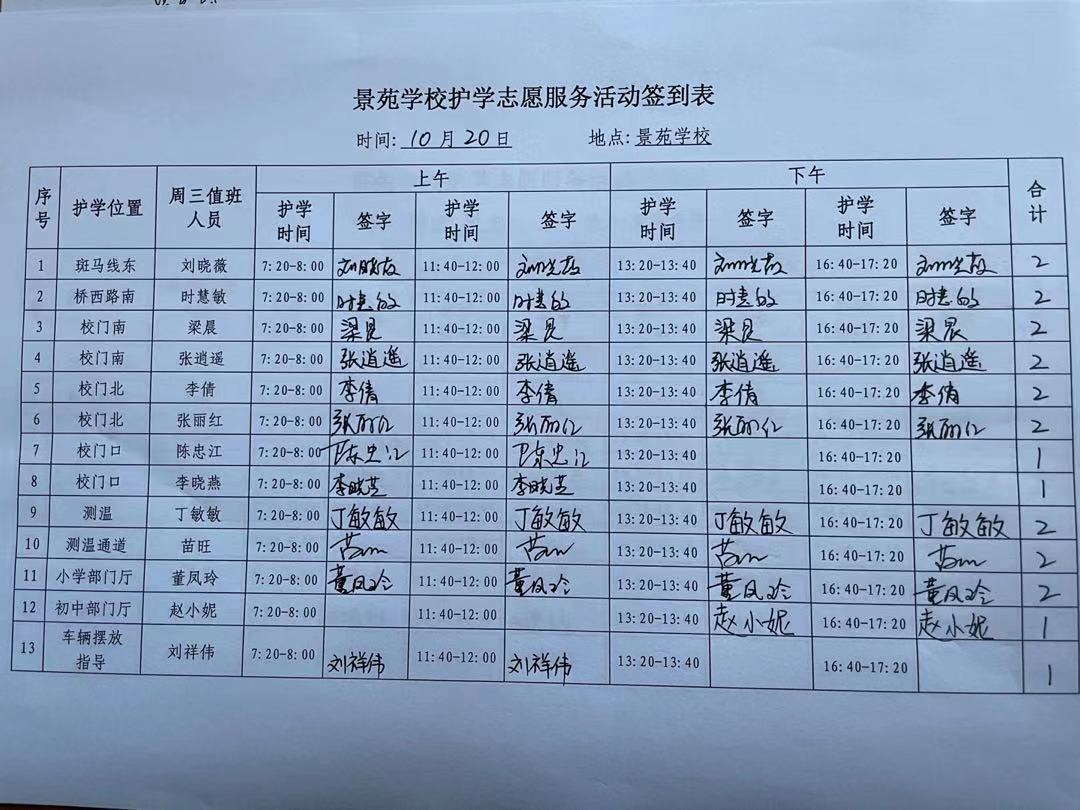 景苑学校护学志愿服务活动签到表
时间: 10月20日 地点: 景苑学校
序号 护学位置 周三值班人员 上午 下午 合计
护学时间 签字 护学时间 签字 护学时间 签字 护学时间 签字
1 斑马线东 刘晓薇 7:20-8:00 刘晓薇 11:40-12:00 刘晓薇 13:20-13:40 刘晓薇 16:40-17:20 刘晓薇 2
2 桥西路南 时慧敏 7:20-8:00 时慧敏 11:40-12:00 时慧敏 13:20-13:40 时慧敏 16:40-17:20 时慧敏 2
3 校门南 梁晨 7:20-8:00 梁晨 11:40-12:00 梁晨 13:20-13:40 梁晨 16:40-17:20 梁晨 2
4 校门南 张逍遥 7:20-8:00 张逍遥 11:40-12:00 张逍遥 13:20-13:40 张逍遥 16:40-17:20 张逍遥 2
5 校门北 李倩 7:20-8:00 李倩 11:40-12:00 李倩 13:20-13:40 李倩 16:40-17:20 李倩 2
6 校门北 张丽红 7:20-8:00 张丽红 11:40-12:00 张丽红 13:20-13:40 张丽红 16:40-17:20 张丽红 2
7 校门口 陈忠江 7:20-8:00 陈忠江 11:40-12:00 陈忠江 13:20-13:40 16:40-17:20 1
8 校门口 李晓燕 7:20-8:00 李晓燕 11:40-12:00 李晓燕 13:20-13:40 16:40-17:20 1
9 测温 丁敏敏 7:20-8:00 丁敏敏 11:40-12:00 丁敏敏 13:20-13:40 丁敏敏 16:40-17:20 丁敏敏 2
10 测温通道 苗旺 7:20-8:00 苗旺 11:40-12:00 苗旺 13:20-13:40 苗旺 16:40-17:20 苗旺 2
11 小学部门厅 董凤玲 7:20-8:00 董凤玲 11:40-12:00 董凤玲 13:20-13:40 董凤玲 16:40-17:20 董凤玲 2
12 初中部门厅 赵小妮 7:20-8:00 11:40-12:00 13:20-13:40 赵小妮 16:40-17:20 赵小妮 1
13 车辆摆放指导 刘祥伟 7:20-8:00 刘祥伟 11:40-12:00 刘祥伟 13:20-13:40 16:40-17:20 1